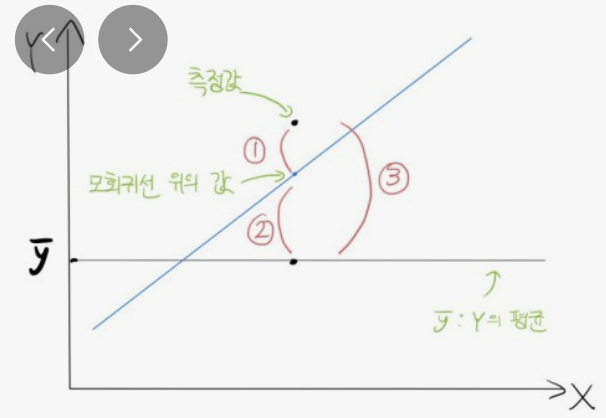 Y
측정값
①
모회귀선 위의 값
③
②
ȳ
ȳ : Y의 평균
X